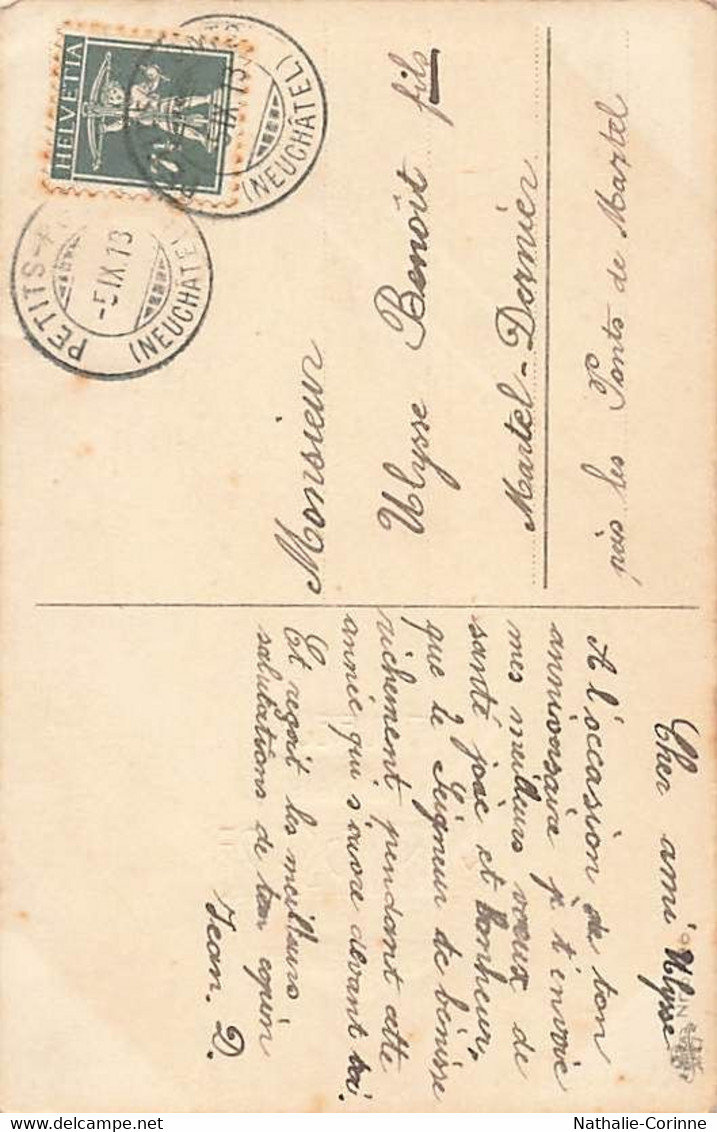 Cher ami Ulysse
A l'occasion de ton
anniversaire je t'envoie
mes meilleurs voeux de
santé joie et bonheur,
que le Seigneur te bénisse
richement pendant cette
année qui s'ouvre devant toi.
Et reçoit les meilleurs
salutations de ton copin
Jean. D.
Monsieur
Ulysse Benoît fils
Martel-Dernier
près les Ponts de Martel
HELVETIA
PETITS-
-5.IX.13
(NEUCHÂTEL)
IX.13
(NEUCHÂTEL)
Nathalie-Corinne